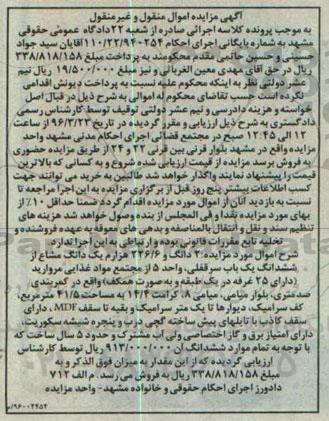 آگهی مزایده اموال منقول و غیرمنقول
به موجب پرونده کلاسه اجرائی صادره از شعبه ۲۲ دادگاه عمومی حقوقی
مشهد به شماره بایگانی اجرای احکام ۱۱۰/۲۲/۹۴۰۲۵۴ آقایان سید جواد
حسینی و حسین حاتمی مقدم محکومند به پرداخت مبلغ ۳۳۸/۸۱۸/۱۵۸
ریال در حق آقای مهدی معین الغربائی و نیز مبلغ ۱۹/۵۰۰/۰۰۰ ریال نیم
عشر دولتی نظر به اینکه محکوم علیه نسبت به پرداخت دیونش اقدامی
نکرده است حسب تقاضای محکوم له اموالی به شرح ذیل در قبال اصل
خواسته و هزینه دادرسی و نیم عشر دولتی توقیف توسط کارشناس رسمی
دادگستری به شرح ذیل ارزیابی و مقرر گردیده در تاریخ ۹۶/۳/۲۳ از ساعت
۱۲ الی ۱۲:۴۵ صبح در مجتمع قضائی اجرای احکام مدنی مشهد واحد
مزایده واقع در مشهد بلوار قرنی بین قرنی ۲۲ و ۲۴ از طریق مزایده حضوری
به فروش برسد مزایده از قیمت ارزیابی شده شروع و به کسانی که بالاترین
قیمت را پیشنهاد نمایند واگذار خواهد شد طالبین به خرید می توانند جهت
کسب اطلاعات بیشتر پنج روز قبل از برگزاری مزایده به این اجرا مراجعه تا
نسبت به بازدید آنان از اموال مورد مزایده اقدام گردد ضمنا حداقل ۱۰٪ از
بهای مورد مزایده نقدا و فی المجلس از بنده وصول خواهد شد هزینه های
تنظیم سند و نقل و انتقال بالمناصفه و بدهی های معوقه به عهده فروشنده و
تخلیه تابع مقررات قانونی بوده و ارتباطی به این اجرا ندارد.
شرح اموال مورد مزایده: ۲ دانگ و ۲۳۶/۶ هزارم یک دانگ مشاع از
ششدانگ یک باب سرقفلی، واحد ۵ از مجتمع مواد غذایی مروارید
(دارای ۲۵ غرفه در یک طبقه و به صورت همکف) واقع در کمربندی
صدمتری، بلوار میامی، میامی ۸، کرامت ۱۴/۴ به مساحت ۴۱/۵ مترمربع،
کف سرامیک، دیوارها تا یک متر سرامیک و بقیه تا سقف MDF، دارای
سقف کاذب با تایلهای پیش ساخته گچی درب و پنجره شیشه سکوریت،
دارای امتیاز برق و گاز اختصاصی ولی آب مشترک و حدود ۵ سال ساخت که
با توجه به تمام موارد ششدانگ آن ۹۱۳/۰۰۰/۰۰۰ ریال توسط کارشناس
ارزیابی گردیده که از این مقدار به میزان فوق الذکر و به
مبلغ ۳۳۸/۸۱۸/۱۵۸ ریال به فروش می رسد. م الف ۷۱۲
دادورز اجرای احکام حقوقی و خانواده مشهد- واحد مزایده
۹۶۰۰۲۴۵۲/م